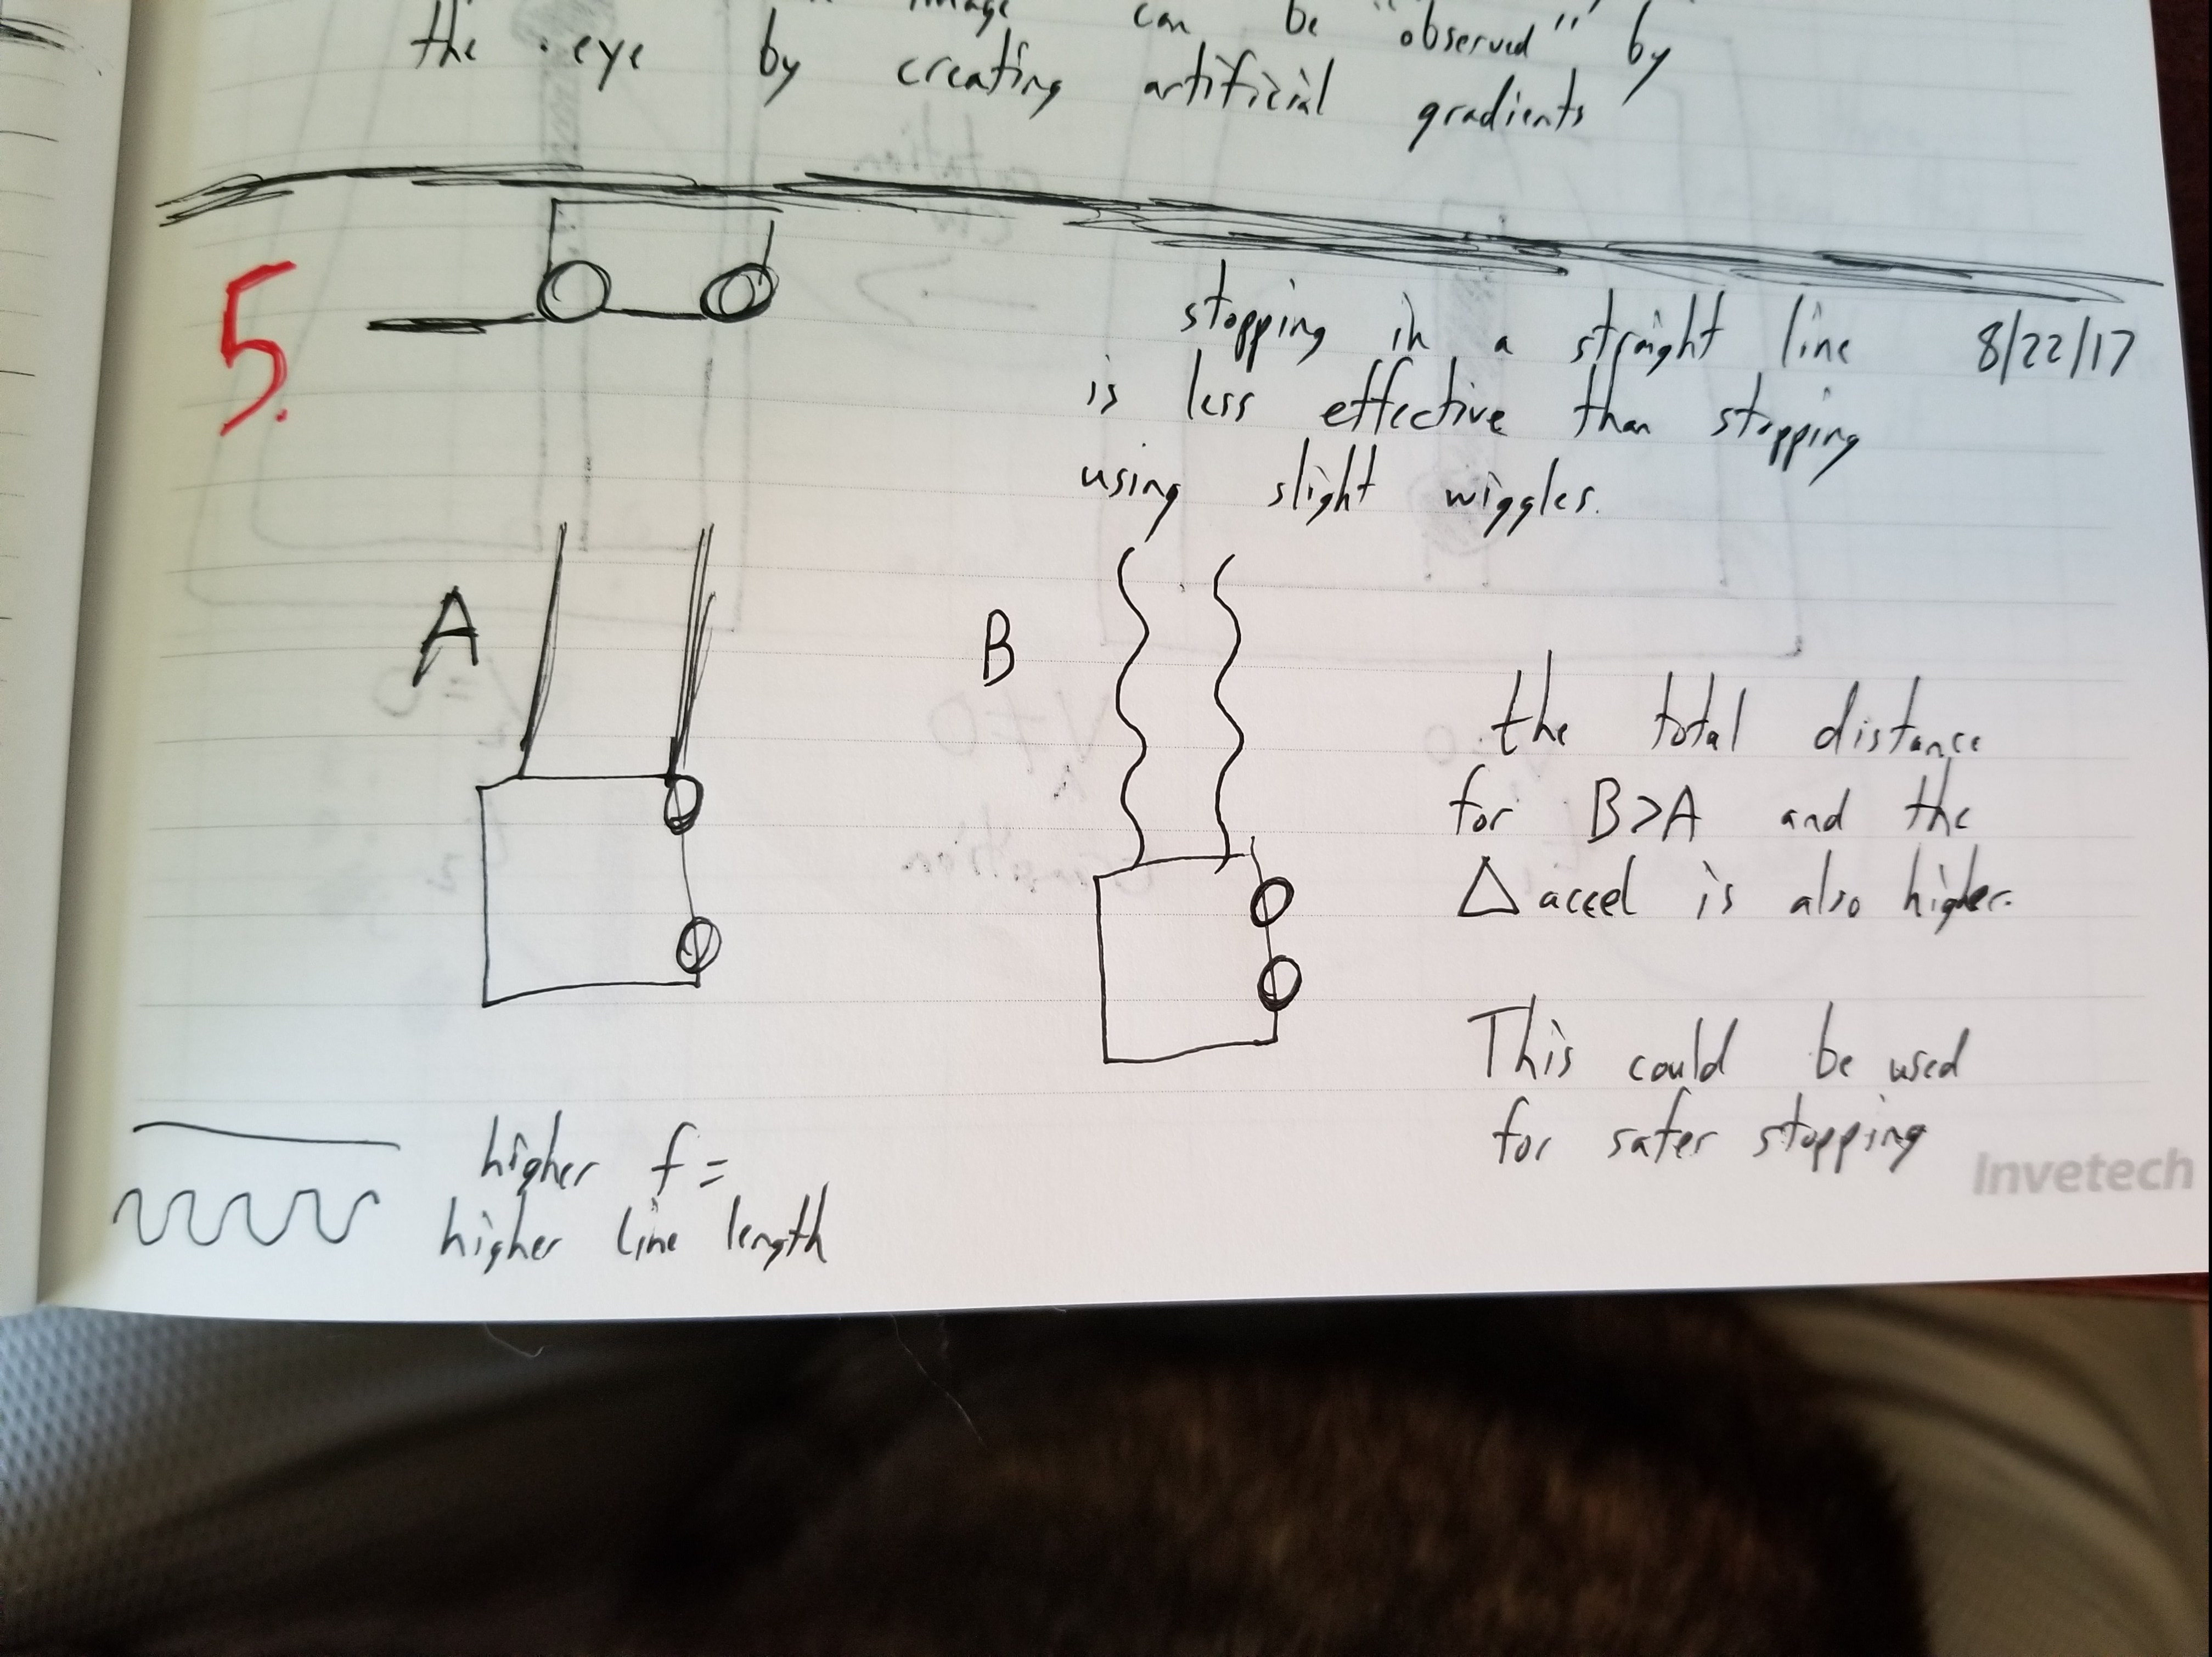 image can be "observed" by
the eye by creating artificial gradients
5.
stopping in a straight line 8/22/17
is less effective than stopping
using slight wiggles.
A
B
the total distance
for B>A and the
Δ accel is also higher.
This could be used
for safer stopping
higher f =
higher line length
Invetech